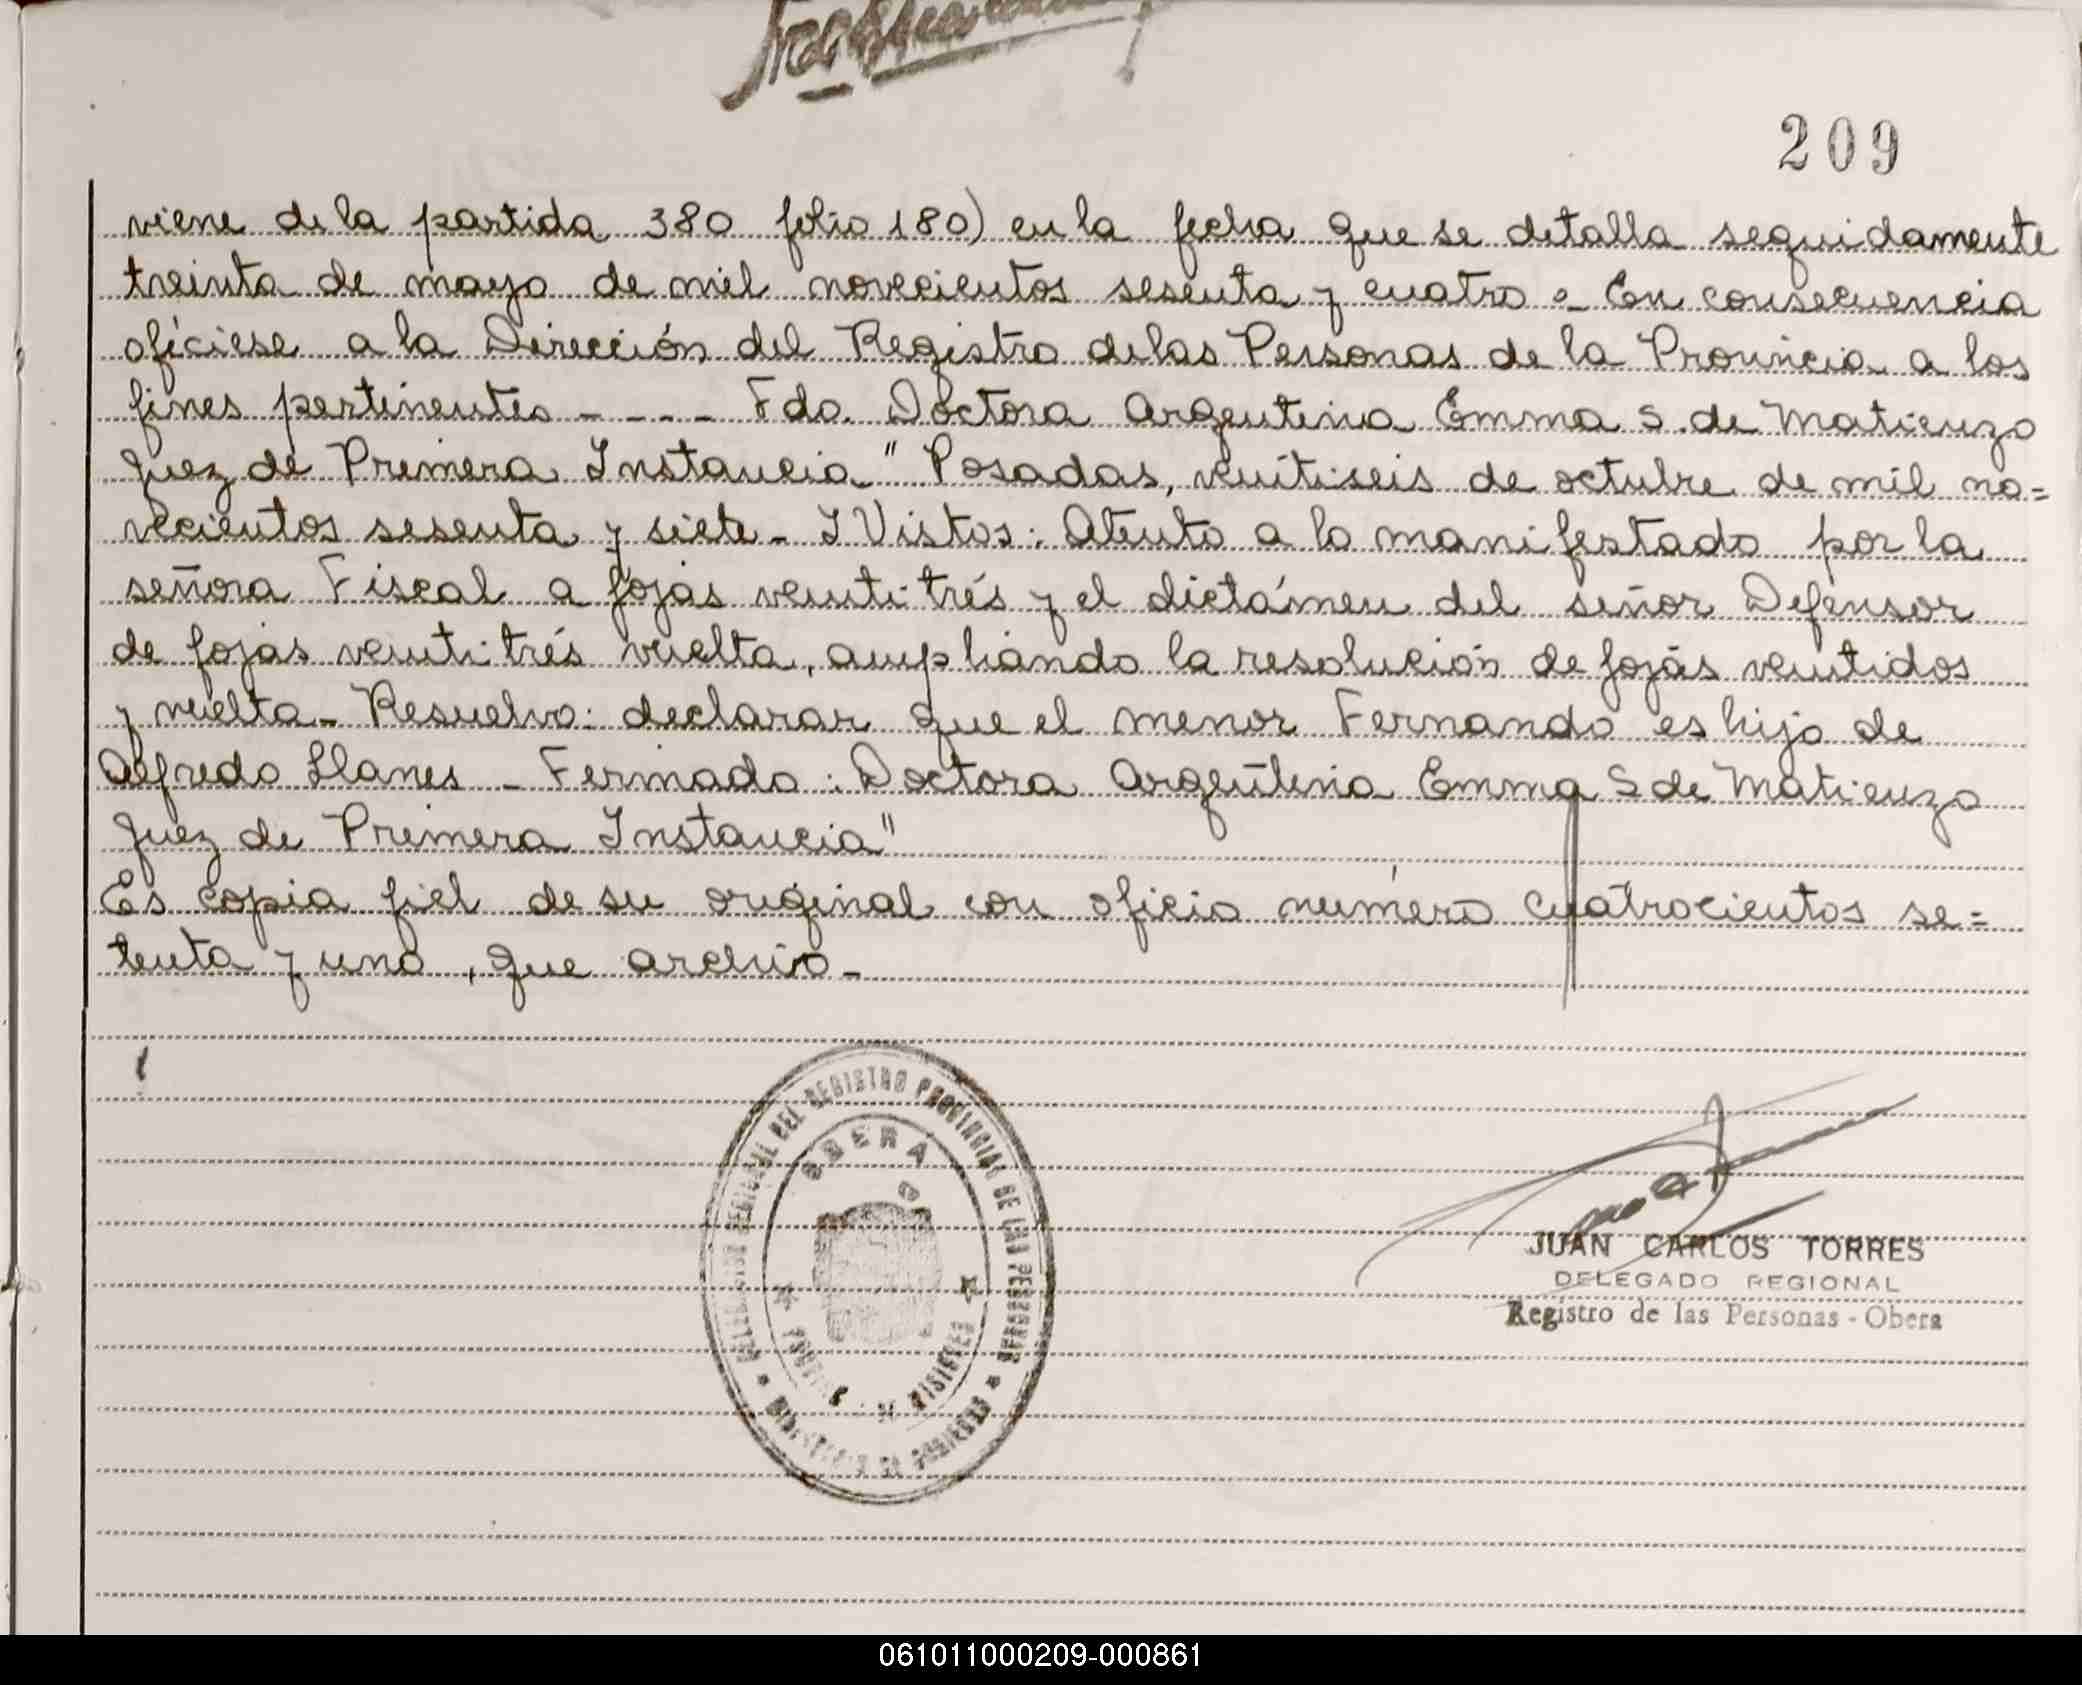 209
viene de la partida 380 folio 180) en la fecha que se detalla seguidamente
treinta de mayo de mil novecientos sesenta y cuatro.- En consecuencia
ofíciese a la Dirección del Registro de las Personas de la Provincia a los
fines pertinentes - - - - Fdo. Doctora Argentina Emma S. de Matienzo
Juez de Primera Instancia_" Posadas, veintiseis de octubre de mil no=
vecientos sesenta y siete - Y Vistos: Atento a lo manifestado por la
señora Fiscal a fojas veintitrés y el dictámen del señor Defensor
de fojas veintitrés vuelta, ampliando la resolución de fojas veintidos
y vuelta - Resuelvo: declarar que el menor Fernando es hijo de
Alfredo Llanes - Firmado: Doctora Argentina Emma S de Matienzo
Juez de Primera Instancia"
Es copia fiel de su original con oficio número cuatrocientos se=
tenta y uno, que archivo -
DEL REGISTRO PROVINCIAL DE LAS PERSONAS
OBERA
MISIONES
JUAN CARLOS TORRES
DELEGADO REGIONAL
Registro de las Personas - Obera
061011000209-000861